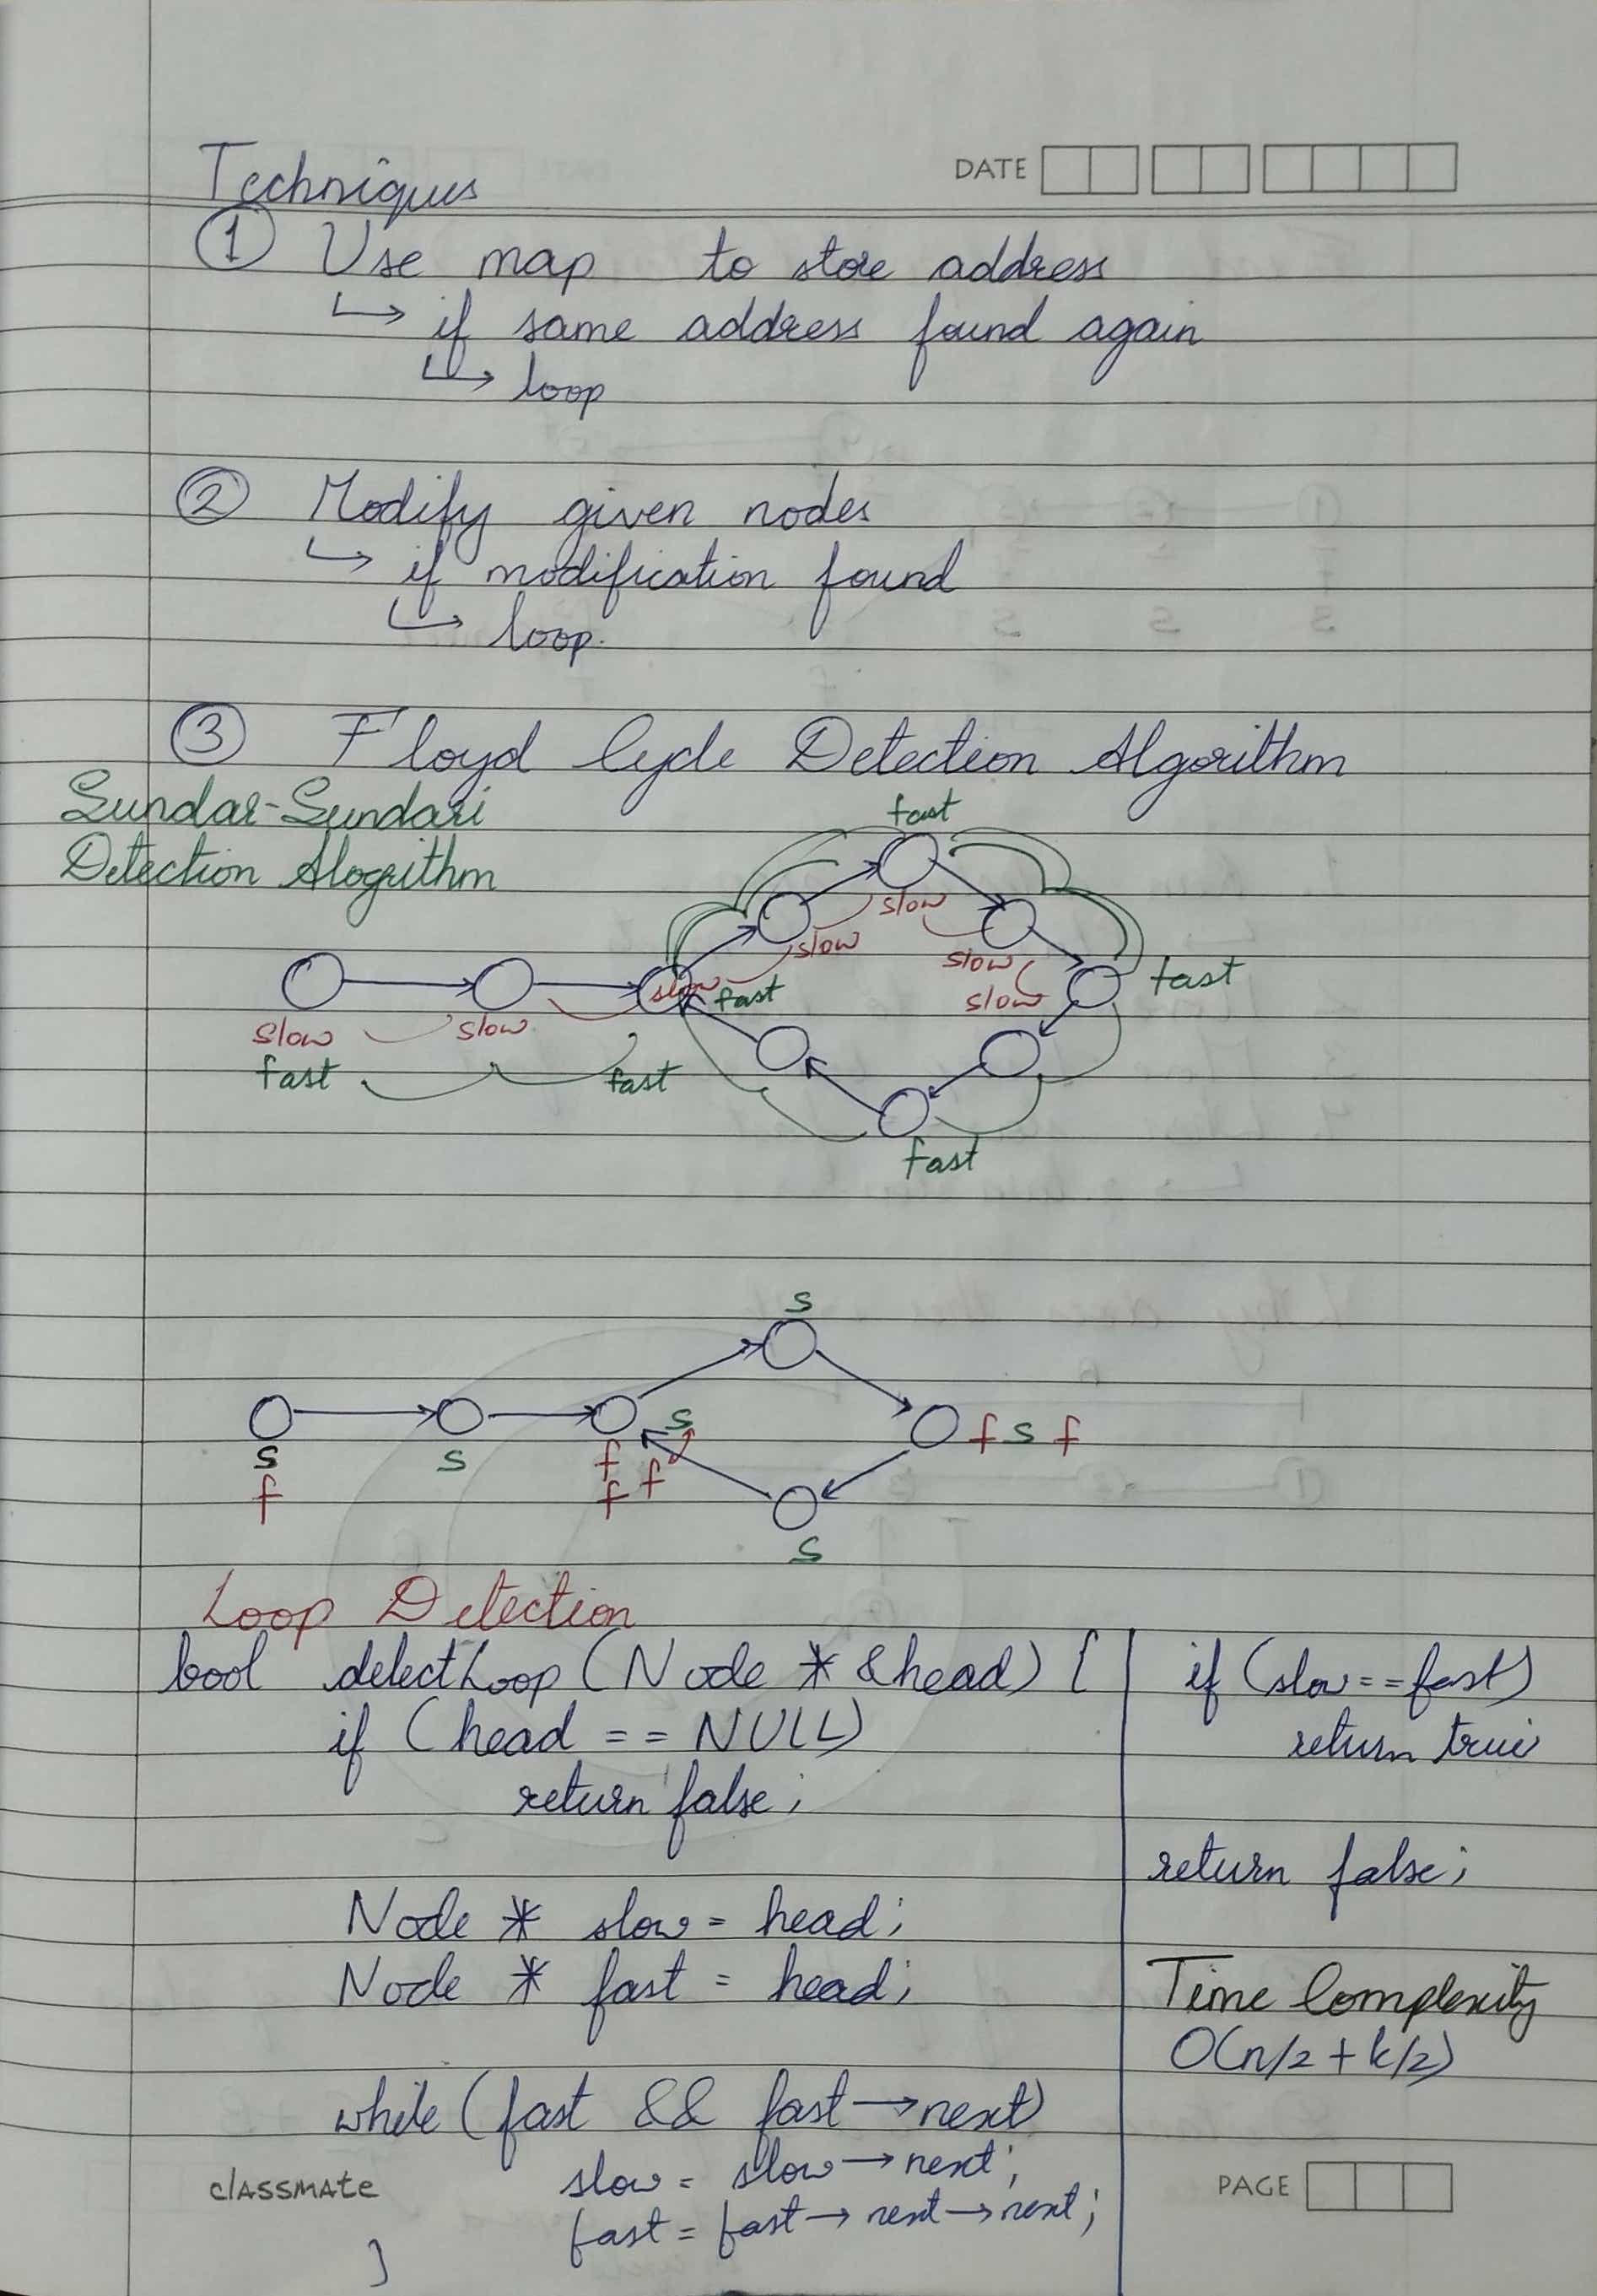 DATE
Techniques
① Use map to store address
↳ if same address found again
↳ loop
② Modify given nodes
↳ if modification found
↳ loop.
③ Floyd Cycle Detection Algorithm
Sundar-Sundari
Detection Alogrithm
fast
slow
slow
slow
slow
slow
fast
slow
fast
slow
slow
fast
fast
fast
s
s
f
s
f
f
f
s
f s f
s
Loop Detection
bool detectLoop (Node * &head) {
if (head == NULL)
return false;
Node * slow = head;
Node * fast = head;
while (fast && fast → next)
slow = slow → next;
fast = fast → next → next;
}
if (slow == fast)
return true
return false;
Time Complexity
O(n/2 + k/2)
classmate
PAGE